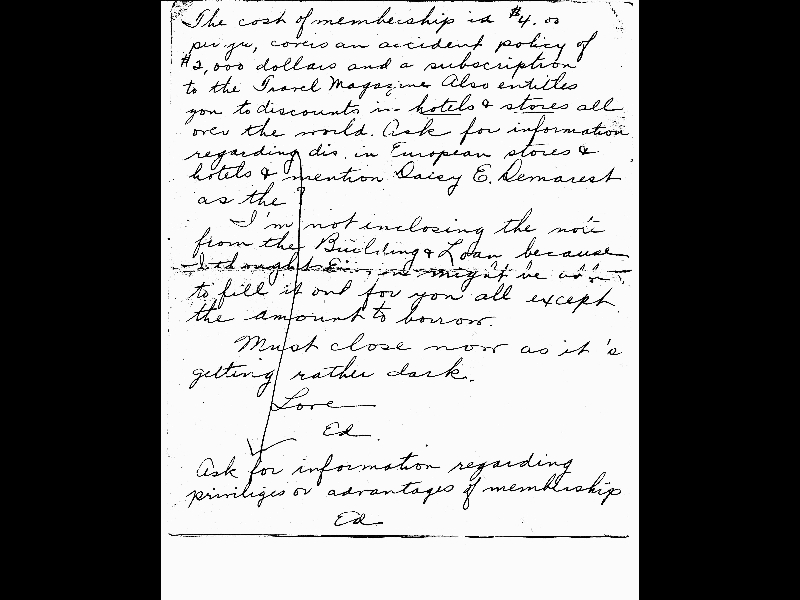 The cost of membership is $4.00
per yr, covers an accident policy of
$2,000 dollars and a subscription
to the Travel Magazine Also entitles
you to discounts in hotels & stores all
over the world. Ask for information
regarding dis. in European stores &
hotels & mention Daisy E. Demarest
as the
I'm not inclosing the note
from the Building & Loan, because
I thought might be
to fill it out for you all except
the amount to borrow.
Must close now as it's
getting rather dark.
Love
Ed.
Ask for information regarding
priviliges or advantages of membership
Ed